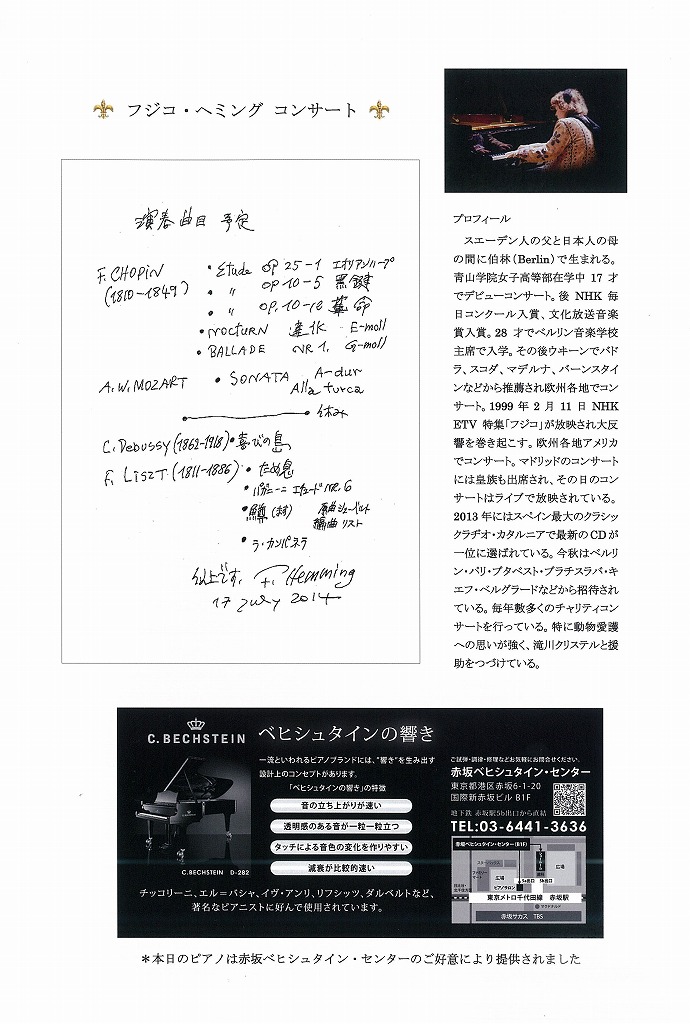 フジコ・ヘミング コンサート
演奏曲目 予定
F. CHOPIN
(1810-1849)
・Etude op 25-1 エオリアンハープ
・〃 op 10-5 黒鍵
・〃 op. 10-12 革命
・NOCTURN 遺作 E-moll
・BALLADE NR 1. G-moll
A. W. MOZART ・SONATA A-dur
Alla turca
休み
C. Debussy (1862-1918)・喜びの島
F. LISZT (1811-1886)・ため息
・パガニーニ エチュード NR. 6
・鱒(ます) 原曲シューベルト
編曲リスト
・ラ・カンパネラ
以上です。 F. Hemming
17 July 2014
プロフィール
スエーデン人の父と日本人の母
の間に伯林(Berlin)で生まれる。
青山学院女子高等部在学中 17 才
でデビューコンサート。後 NHK 毎
日コンクール入賞、文化放送音楽
賞入賞。28 才でベルリン音楽学校
主席で入学。その後ウキーンでバド
ラ、スコダ、マデルナ、バーンスタイ
ンなどから推薦され欧州各地でコン
サート。1999 年 2 月 11 日 NHK
ETV 特集「フジコ」が放映され大反
響を巻き起こす。欧州各地アメリカ
でコンサート。マドリッドのコンサート
には皇族も出席され、その日のコン
サートはライブで放映されている。
2013 年にはスペイン最大のクラシッ
クラヂオ・カタルニアで最新の CD が
一位に選ばれている。今秋はベルリ
ン・パリ・ブタペスト・ブラチスラバ・キ
エフ・ベルグラードなどから招待され
ている。毎年数多くのチャリティコン
サートを行っている。特に動物愛護
への思いが強く、滝川クリステルと援
助をつづけている。
C. BECHSTEIN
ベヒシュタインの響き
一流といわれるピアノブランドには、“響き”を生み出す
設計上のコンセプトがあります。
「ベヒシュタインの響き」の特徴
音の立ち上がりが速い
透明感のある音が一粒一粒立つ
タッチによる音色の変化を作りやすい
減衰が比較的速い
C.BECHSTEIN D-282
チッコリーニ、エル＝バシャ、イヴ・アンリ、リフシッツ、ダルベルトなど、
著名なピアニストに好んで使用されています。
ご試弾・調律・修理などお気軽にお問合せください。
赤坂ベヒシュタイン・センター
東京都港区赤坂6-1-20
国際新赤坂ビル B1F
地下鉄 赤坂駅5b出口から直結
TEL:03-6441-3636
赤坂ベヒシュタイン・センター(B1F)
スターバックス
広場
広場
5a出口 5b出口
ピアノサロン
東京メトロ千代田線 赤坂駅
マクドナルド
赤坂サカス TBS
＊本日のピアノは赤坂ベヒシュタイン・センターのご好意により提供されました